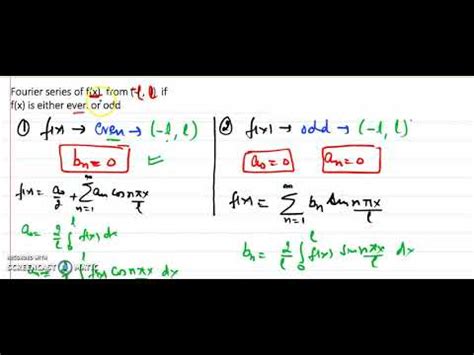 Fourier series of f(x) from (-l, l) if
f(x) is either even or odd
① f(x) → even → (-l, l)
bn = 0
f(x) = a0/2 + ∞∑n=1 an cos nπx/l
a0 = 2/l ∫0^l f(x) dx
an = 2/l ∫0^l f(x) cos nπx/l dx
② f(x) → odd → (-l, l)
a0 = 0 an = 0
f(x) = ∞∑n=1 bn sin nπx/l
bn = 2/l ∫0^l f(x) sin nπx/l dx
RECORDED WITH
SCREENCAST MATIC